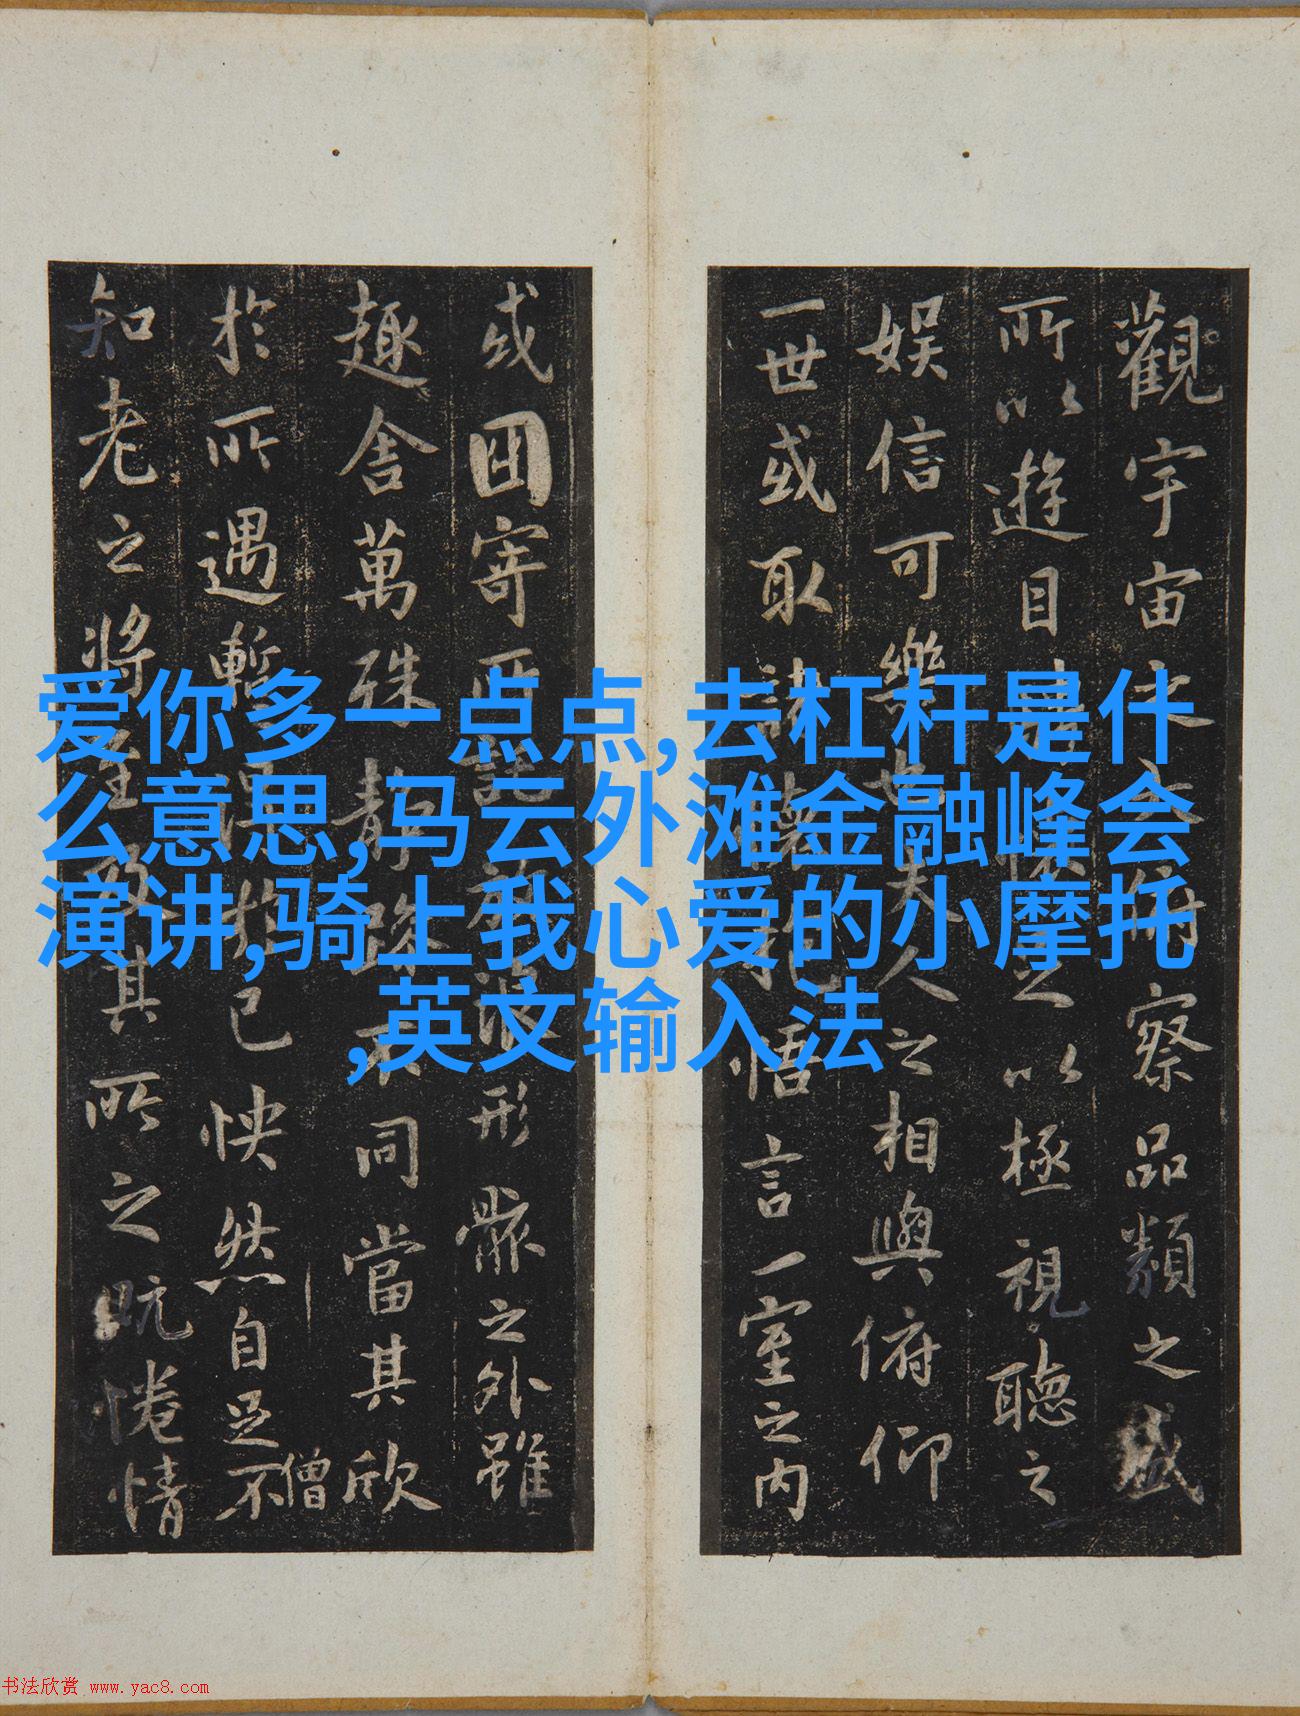 觀宇宙之大俯察品類之盛
所以遊目騁懷足以極視聽之
娛信可樂也夫人之相與俯仰
一世或取諸懷抱悟言一室之内
或囙寄所託放浪形骸之外雖
趣舍萬殊靜躁不同當其欣
僧
於所遇暫得於己快然自足不
知老之將至及其所之既惓情
爱你多一点点,去杠杆是什
么意思,马云外滩金融峰会
演讲,骑上我心爱的小摩托
,英文输入法
书法欣赏 www.yac8.com